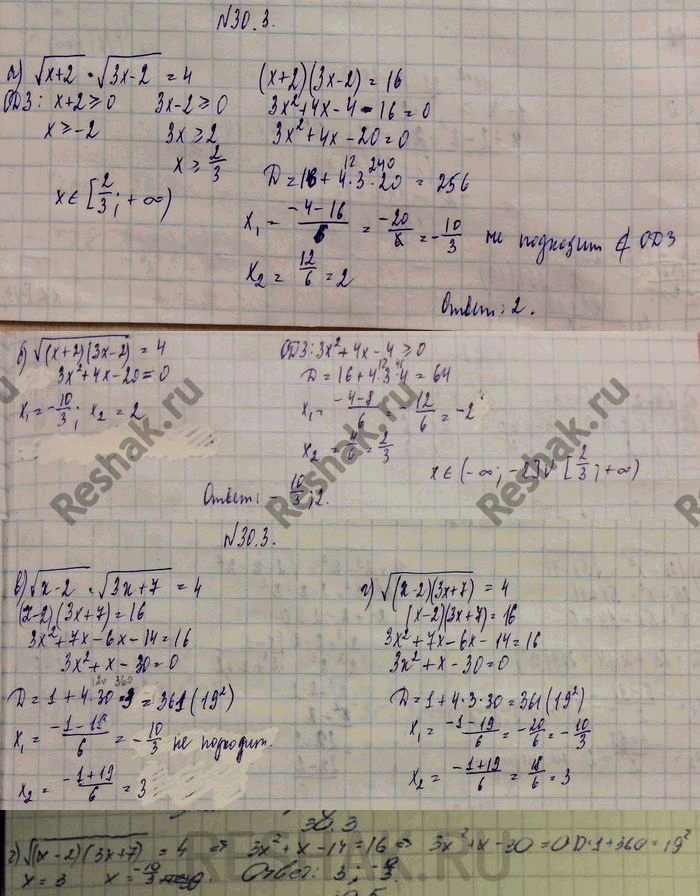 №30.3.
а) √(x+2) · √(3x-2) = 4
ОДЗ: x+2≥0 3x-2≥0
x≥-2 3x≥2
x≥2/3
x∈[2/3; +∞)
(x+2)(3x-2)=16
3x²+4x-4-16=0
3x²+4x-20=0
12 240
D=16+4·3·20=256
x₁=(-4-16)/6=-20/6=-10/3 не подходит ∉ ОДЗ
x₂=12/6=2
Ответ: 2.
б) √((x+2)(3x-2))=4
3x²+4x-20=0
x₁=-10/3; x₂=2
ОДЗ: 3x²+4x-4≥0
D=16+4·3·4=64
x₁=(-4-8)/6=-12/6=-2
x₂=4/6=2/3
x∈(-∞;-2]∪[2/3;+∞)
Ответ: -10/3; 2.
№30.3.
в) √(x-2) · √(3x+7) = 4
(x-2)(3x+7)=16
3x²+7x-6x-14=16
3x²+x-30=0
120 360
D=1+4·30·3=361(19²)
x₁=(-1-19)/6=-10/3 не подходит.
x₂=(-1+19)/6=3
г) √((x-2)(3x+7))=4
(x-2)(3x+7)=16
3x²+7x-6x-14=16
3x²+x-30=0
D=1+4·3·30=361(19²)
x₁=(-1-19)/6=-20/6=-10/3
x₂=(-1+19)/6=18/6=3
30.3
г) √((x-2)(3x+7)) = 4 ⇒ 3x²+x-14=16 ⇒ 3x²+x-30=0 D=1+360=19²
x=3 x=-10/3 Ответ: 3; -10/3.
Reshak.ru
Reshak.ru
Reshak.ru
RESHAK.RU